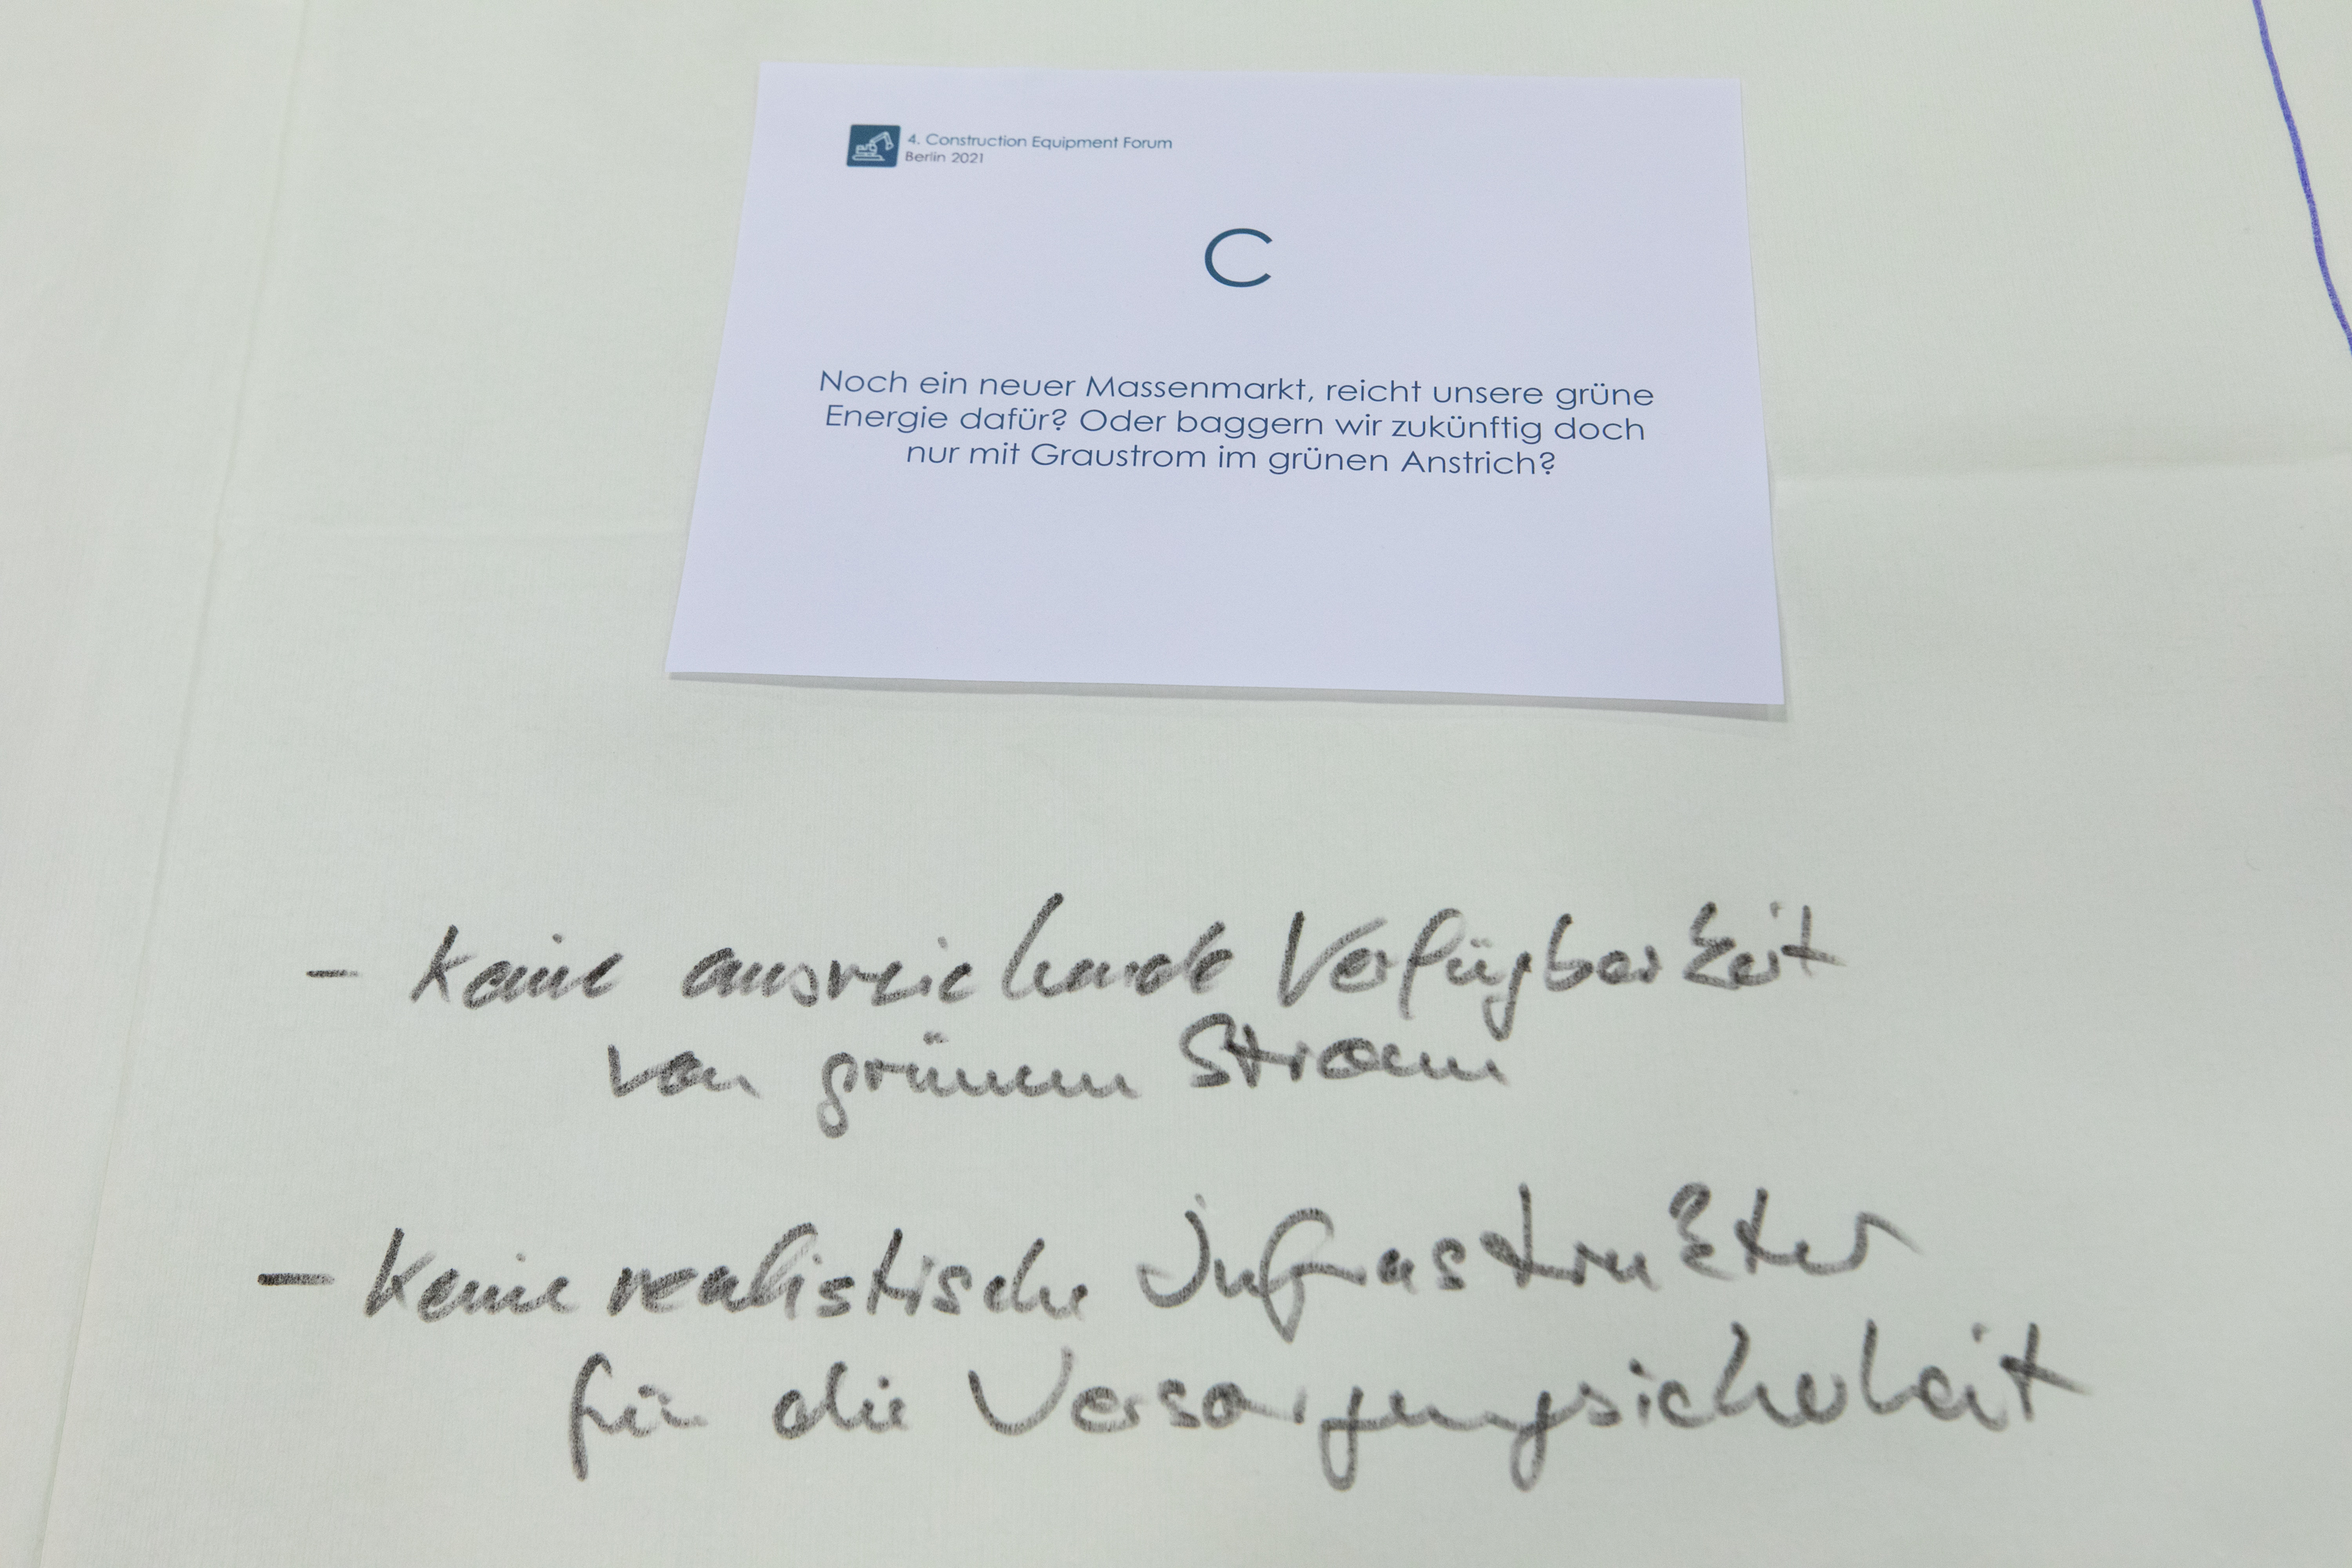 4. Construction Equipment Forum
Berlin 2021
C
Noch ein neuer Massenmarkt, reicht unsere grüne
Energie dafür? Oder baggern wir zukünftig doch
nur mit Graustrom im grünen Anstrich?
- keine ausreichende Verfügbarkeit
von grünem Strom
- keine realistische Infrastruktur
für die Versorgungsicherheit